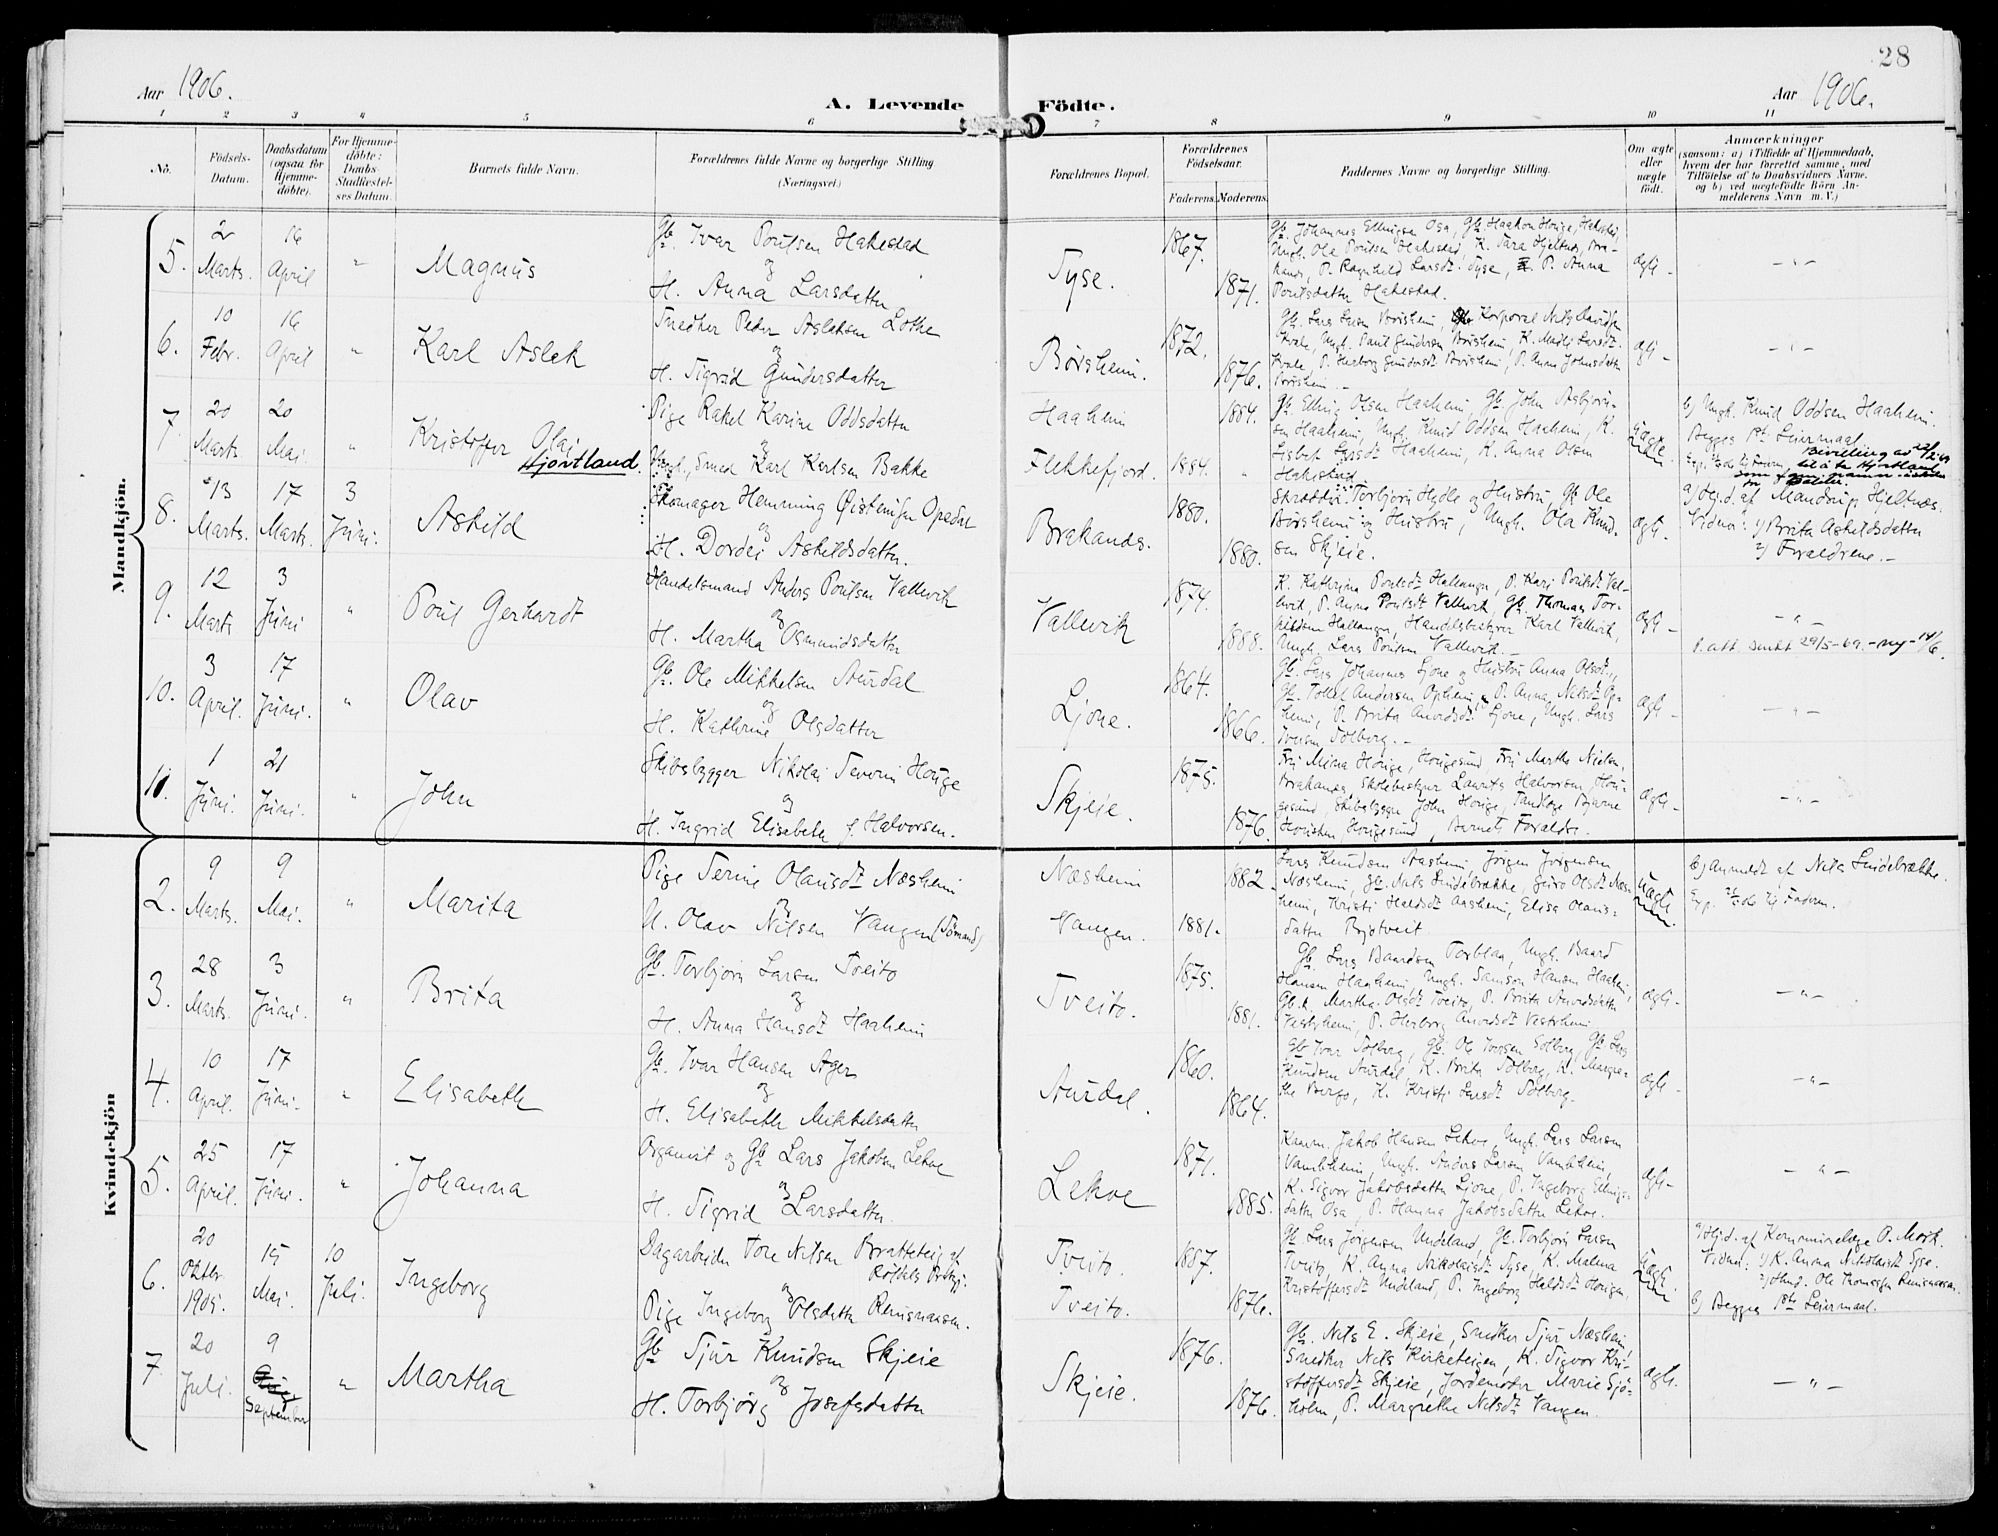 28
Aar 1906.
A. Levende Födte.
Aar 1906.
1 2 3 4 5 6 7 8 9 10 11
No.
Födsels-Datum.
Daabsdatum (ogsaa for Hjemme-döbte).
For Hjemme-döbte: Daabs-Stadfæstel-ses Datum.
Barnets fulde Navn.
Forældrenes fulde Navne og borgerlige Stilling (Næringsvei.)
Forældrenes Bopæl.
Forældrenes Födselsaar.
Faderens. Moderens.
Faddernes Navne og borgerlige Stilling.
Om ægte eller uægte födt.
Anmærkninger
(saasom: a) i Tilfælde af Hjemmedaab, hvem der har forrettet samme, med Tilföielse af to Daabsvidners Navne, og b) ved uegtefödte Börn An-melderens Navn m. V.)
Mandkjön.
5. 2 Marts. 16 April " Magnus
Gb. Ivar Poulsen Hakestad
og
H. Anna Larsdatter
Tyse. 1867. 1871.
Gb. Johannes Ellingsen Osa, Gb. Haakon Houge, Hakestad,
Ungk. Ole Poulsen Hakestad, K. Sara Hjeltnes, Bra-
kanes, P. Ragnhild Larsdt. Tyse, P. Anna
Poulsdatter Hakestad.
ægte - - " -
6. 10 Febr. 16 April " Karl Aslek
Snedker Peder Aslaksen Lothe
og
H. Sigrid Gundersdatter
Børsheim. 1872. 1876.
Gb. Lars Larsen Børsheim, Korporal Nils Davidsen
Kvale, Ungk. Paul Gundersen Børsheim, K. Larsdt.
Kvale, P. Herborg Gundersdt Børsheim, P. Anna Johnsdatter
Børsheim. -
ægte - - " -
7. 20 Marts. 20 Mai " Kristoffer Olai Hjortland.
Pige Rakel Karine Oddsdatter
og
Ungk., Smed Karl Karlsen Bakke
Haaheim 1884.
Flekkefjord. 1884. "
Gb. Elling Olsen Haaheim, Gb. John Asbjørn-
sen Haaheim, Ungk. Knud Oddsen Haaheim, K.
Lisbet Larsdt Haaheim, K. Anna Olsen
Hakestad.
Uægte.
b) Ungk. Knud Oddsen Haaheim.
Begges 1st Leiermaal.
Bevilling av
til å ta Hjortland
som navn
8. 13 Marts. 17 Marts. 3 Juni. Askild
Skomager Hemming Øisteinsen Opedal
og
H. Dordei Askildsdatter.
Brakanes. 1880. 1880.
Skrædder Torbjørn Hylle og Hustru, Gb. Ole
Børsheim og Hustru, Ungk. Ola Knud-
sen Skjeie.
ægte.
a) Hjd. af Mandrup Hjeltnæs.
Vidner: 1) Brita Askildsdatter
2) Forældrene. -
9. 12 Marts 3 Juni " Poul Gerhardt
Handelsmand Anders Poulsen Vallevik
og
H. Martha Osmundsdatter
Vallevik 1874. 1888.
K. Kathrina Poulsdt Hallanger, P. Kari Poulsdt Val-
levik, P. Anna Poulsdt Vallevik, Gb. Thomas Tor-
kildsen Hallanger, Handelsbestyrer Karl Vallevik,
Ungk. Lars Poulsen Vallevik. -
ægte - - " -
P. att. sendt 29/5-69.-ny-14/6.
10. 3 April. 17 Juni. " Olav
Gb. Ole Mikkelsen Aurdal
og
H. Kathrine Olsdatter
Ljone. 1864. 1866.
Gb. Lars Johannes Ljone og Hustru Anna Olsdt.,
Gb. Tollef Andersen Opheim, P. Anna Nilsdt Op-
heim, P. Brita Anvedsdt Ljone, Ungk. Lars
Iversen Solberg. -
ægte - - " -
11. 1 Juni. 21 Juni. " John
Skibsbygger Nikolai Severin Houge
og
H. Ingrid Elisabeth f. Halvorsen.
Skjeie. 1875. 1876.
Frk Mina Houge, Haugesund Frk Marthe Nielsen,
Brakanes, Skolebestyrer Laurits Halvorsen Hau-
gesund, Skibsbygger John Houge, Tandlæge Bjarne
Haugesund, Barnets Forældre.
ægte - - " -
Kvindekjön
2. 9 Marts. 9 Mai. " Marita
Pige Serine Olausdt Næsheim
og
U. Olav Nilsen Vangen (Sömand)
Næsheim 1882.
Vangen. 1881.
Lars Knudsen Aasheim, Jörgen Jörgensen
Næsheim, Gb. Nils Lindebrække, Guro Olsdt Næs-
heim, Kristi Haldsdt Aasheim, Elisa Olaus-
datter Bjotveit
Uægte
b) Anmeldt af Nils Lindebrække.
3. 28 Marts. 3 Juni. " Brita
Gb. Torbjørn Larsen Tveito
og
H. Anna Hansdt Haaheim
Tveito. 1875. 1881.
Gb. Lars Baardsen Torblaa, Ungk. Baard
Hansen Haaheim, Ungk. Samson Hansen Haaheim,
Gb.k. Martha Olsdt Tveito, P. Brita Anvedsdatter
Vestrheim, P. Herborg Anvedsdt Vestrheim
ægte - - " -
4. 10 April. 17 Juni. " Elisabeth
Gb. Ivar Hansen Ager
og
H. Elisabeth Mikkelsdatter
Aurdal. 1860. 1864.
Gb. Ivar Solberg, Gb. Ole Iversen Solberg, Gb. Lars
Knudsen Aurdal, K. Brita Solberg, K. Margre-
the Berge, K. Kristi Larsdt Solberg.
ægte - - " -
5. 25 April. 17 Juni. " Johanna
Organist og Gb. Lars Jakobsen Lekve
og
H. Sigrid Larsdatter.
Lekve 1871. 1885.
Jakob Hansen Lekve, Ungk. Lars Larsen
Vambheim, Ungk. Anders Larsen Vambheim,
K. Sigvor Jakobsdatter Ljone, P. Ingeborg Ellings-
datter Osa, P. Hanna Jakobsdatter Lekve.
ægte - - " -
6. 20 Oktbr. 1905. 15 Mai. 10 Juli. Ingeborg
Dagarbeider Tore Nilsen Bratteteig af
Röldals Prstgj.
og
Pige Ingeborg Olsdatter Reinsnaasen.
Tveito 1887.
Tveito. 1876.
Gb. Lars Jörgensen Undeland, Gb. Torbjørn Larsen
Tveito, K. Anna Nikolaisdt Tyse, K. Malena
Kristoffersdt Undeland, P. Ingeborg Haldsdt Horigen,
Uægte.
a) Hjd. af Kommunelæge O. Mørk.
Vidner: 1) K. Anna Nikolaisdt Tyse.
2) Ole Thomassen Reinsnaasen.
b) Begges 1ste Leiermaal.
7. 20 Juli. 9 September " Martha
Gb Sjur Knudsen Skjeie
og
H. Torbjørg Josefsdatter
Skjeie. 1876. 1876.
Gb. Nils E. Skjeie, Snedker Sjur Næsheim,
Snedker Nils Kirketeigen, K. Sigvor Kri-
stoffersdt Skjeie, Jordemoder Marie Sjö-
holm, P. Margrethe Nilsdt Vangen.
ægte. - " -